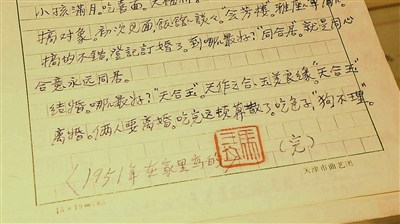 小孩满月。吃喜面。天
搞对象。初次见面。饭馆谈心"会芳楼。雅座单间"
搞的不错。登记訂婚了。到哪儿最好？"同合居。就是同心
合意永远同居。
结婚。哪儿最好？"天合玉"。天作之合。玉美良缘。"天合玉"
离婚。俩人要离婚。吃完这顿算散了。吃包子"狗不理"。
〈1951年在家里写的
（完）
天津市曲艺团